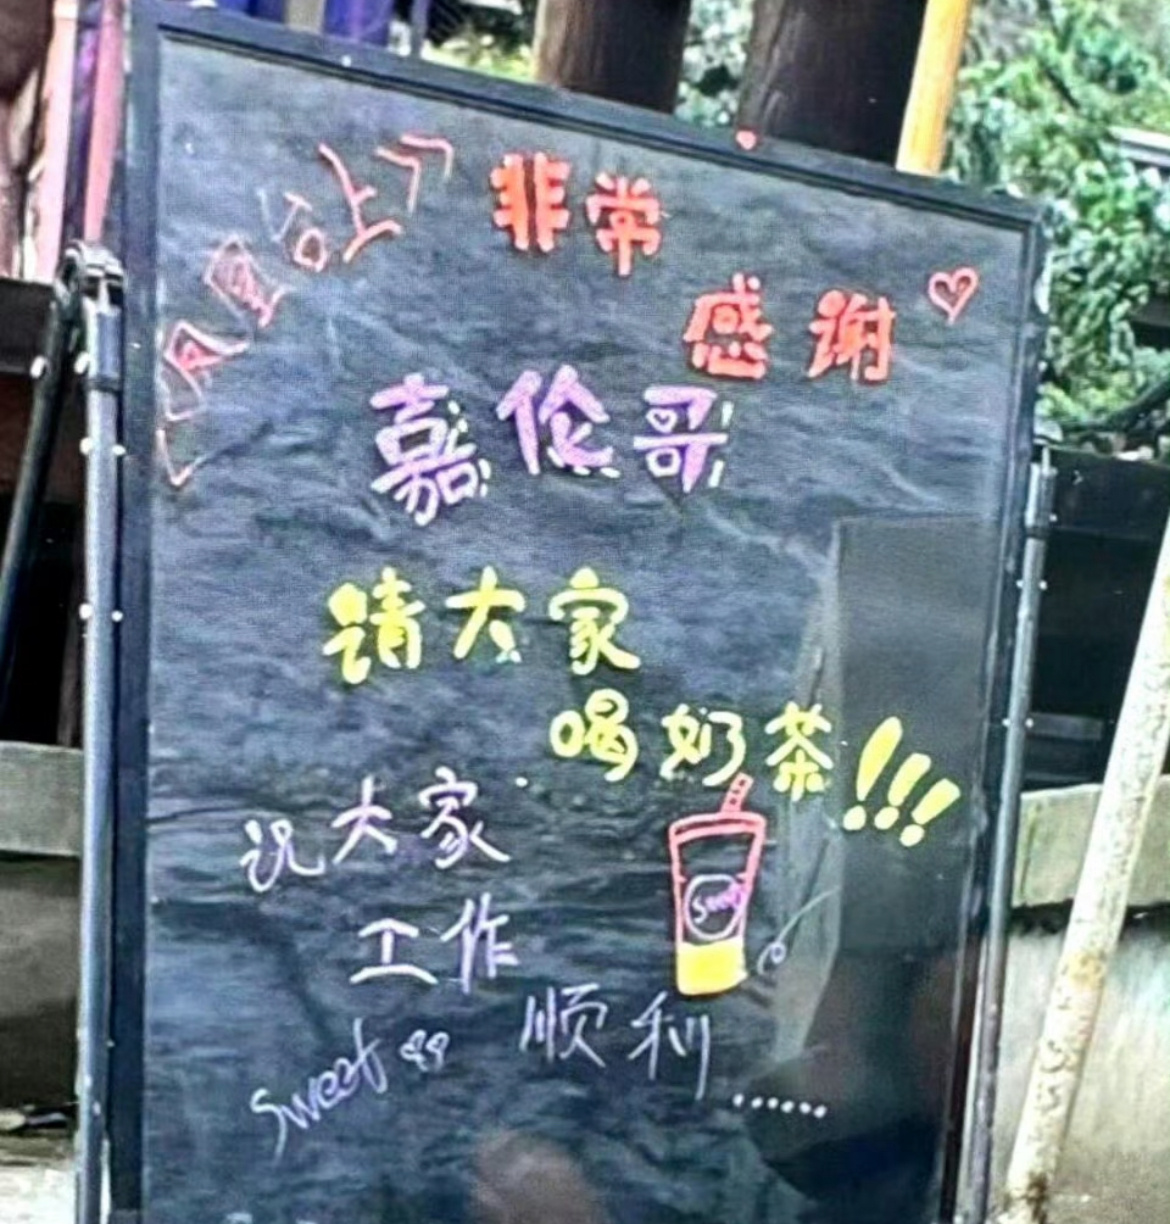 《凤凰台上》
非常
感谢
嘉伦哥
请大家
喝奶茶!!!
祝大家
工作
顺利......
Sweet
Sweet